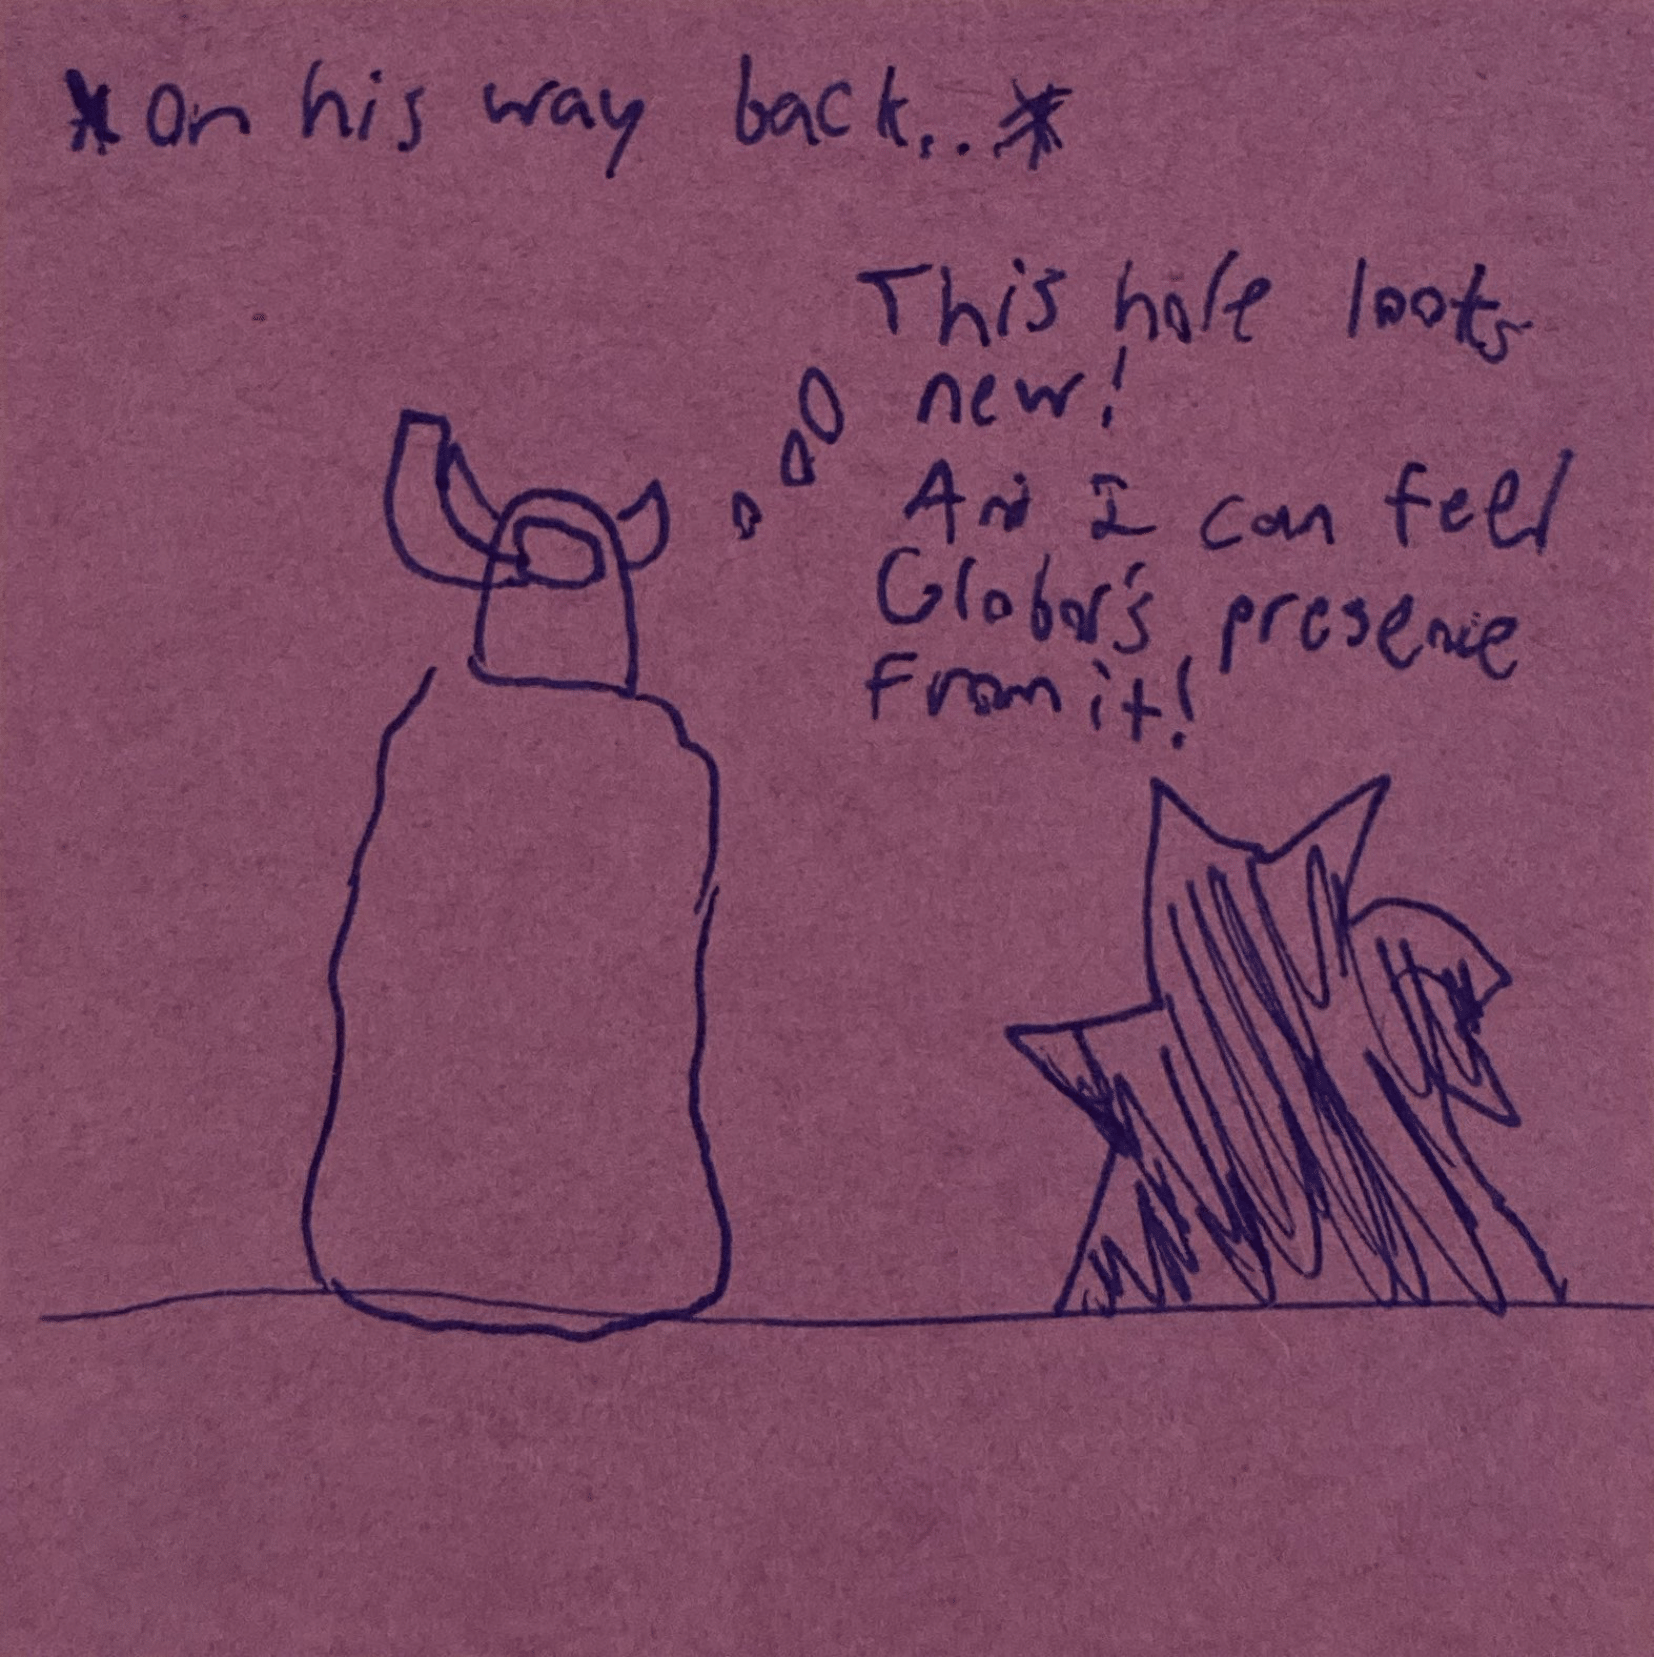 *on his way back...*
This hole looks
new!
And I can feel
Globor's presence
From it!